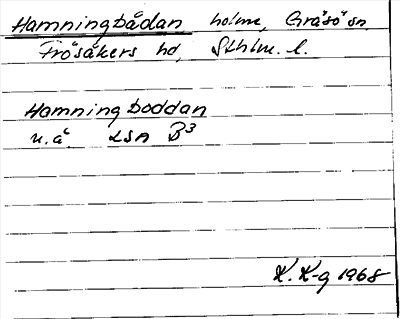 Hamningbådan holme, Gräsö sn.
Frösåkers hd, Sthlm. l.
Hamningboddan
u.å. LSA B3
K. K-g 1968